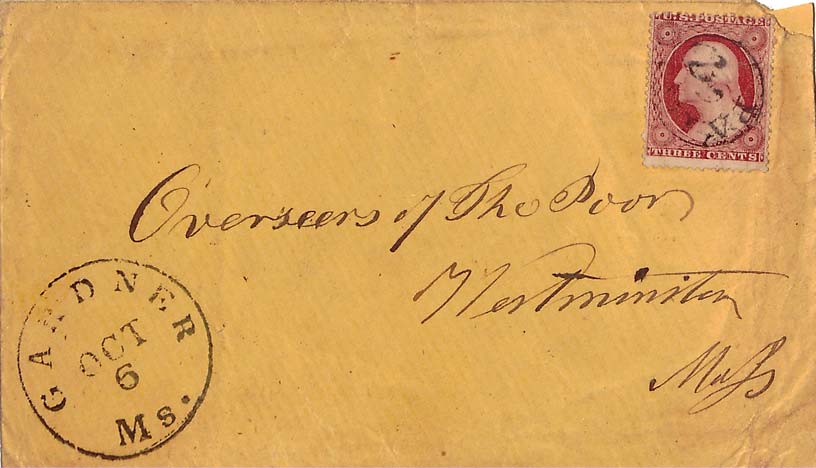 U.S. POSTAGE
THREE CENTS
Overseers of The Poor
Westminster
Mass
GARDNER
OCT
6
Ms.